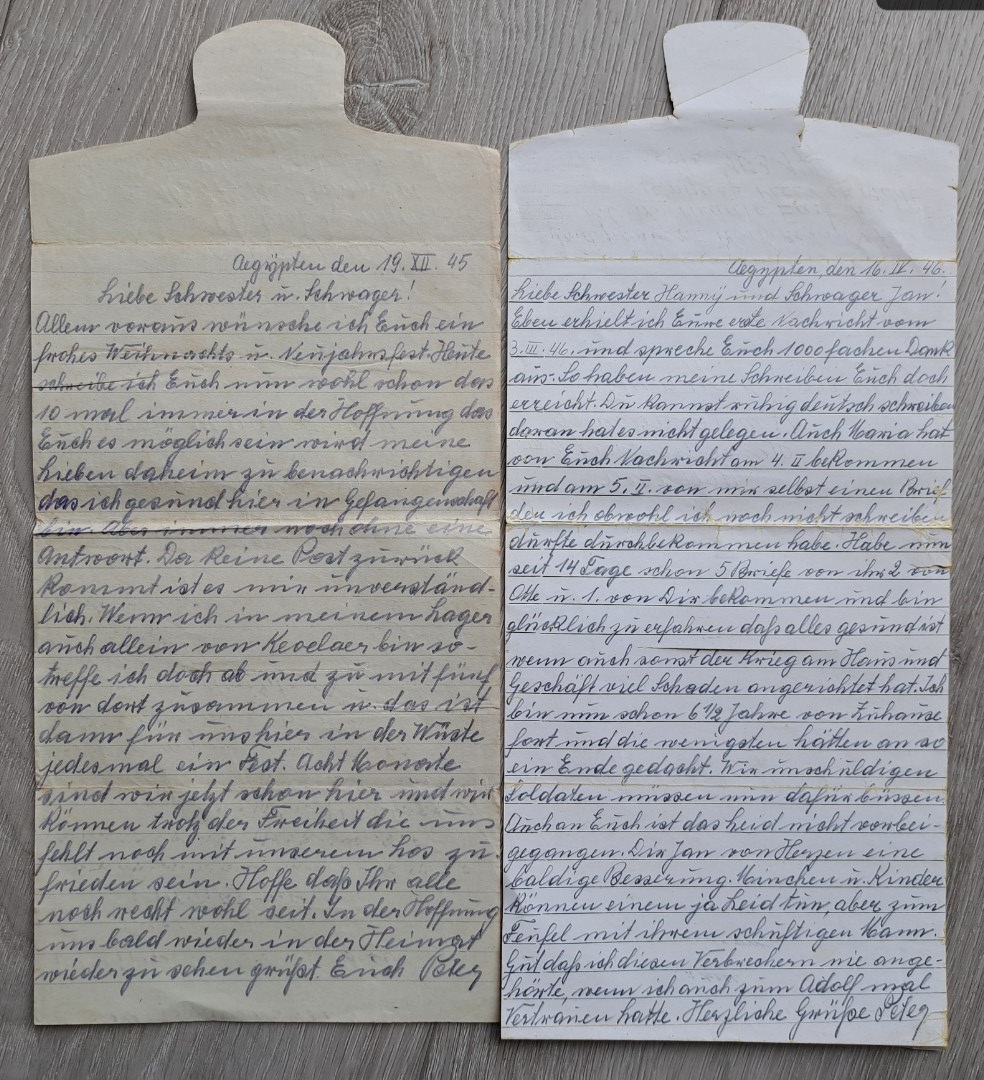 Aegypten den 19. XII. 45
Liebe Schwester u. Schwager!
Allem voraus wünsche ich Euch ein
frohes Weihnachts u. Neujahrsfest. Heute
schreibe ich Euch nun wohl schon das
10 mal immer in der Hoffnung das
Euch es möglich sein wird meine
Lieben daheim zu benachrichtigen
das ich gesund hier in Gefangenschaft
bin. Aber immer noch ohne eine
Antwort. Da keine Post zurück
kommt ist es mir unverständ-
lich. Wenn ich in meinem Lager
auch allein von Kevelaer bin so
treffe ich doch ab und zu mit fünf
von dort zusammen u. das ist
dann für uns hier in der Wüste
jedesmal ein Fest. Acht Monate
sind wir jetzt schon hier und wir
können trotz der Freiheit die uns
fehlt noch mit unserem Los zu-
frieden sein. Hoffe daß Ihr alle
noch recht wohl seit. In der Hoffnung
uns bald wieder in der Heimat
wieder zu sehen grüßt Euch Peter
Aegypten, den 16. IV. 46.
Liebe Schwester Hanny und Schwager Jan!
Eben erhielt ich Eure erste Nachricht vom
3. III. 46. und spreche Euch 1000 fachen Dank
aus. So haben meine Schreiben Euch doch
erreicht. Du kannst ruhig deutsch schreiben
daran hat es nicht gelegen. Auch Maria hat
von Euch Nachricht am 4. II bekommen
und am 5. II. von mir selbst einen Brief
den ich obwohl ich noch nicht schreiben
durfte durchbekommen habe. Habe nun
seit 14 Tage schon 5 Briefe von ihr 2 von
Otto u. 1. von Dir bekommen und bin
glücklich zu erfahren daß alles gesund ist
wenn auch sonst der Krieg am Haus und
Geschäft viel Schaden angerichtet hat. Ich
bin nun schon 6 1/2 Jahre von Zuhause
fort und die wenigsten hätten an so
ein Ende gedacht. Wir unschuldigen
Soldaten müssen nun dafür büssen.
Auch an Euch ist das Leid nicht vorbei-
gegangen. Dir Jan von Herzen eine
baldige Besserung. Minchen u. Kinder
können einem ja Leid tun, aber zum
Teufel mit ihrem schuftigen Mann.
Gut daß ich diesen Verbrechern nie ange-
hörte, wenn ich auch zum Adolf mal
Vertrauen hatte. Herzliche Grüße Peter